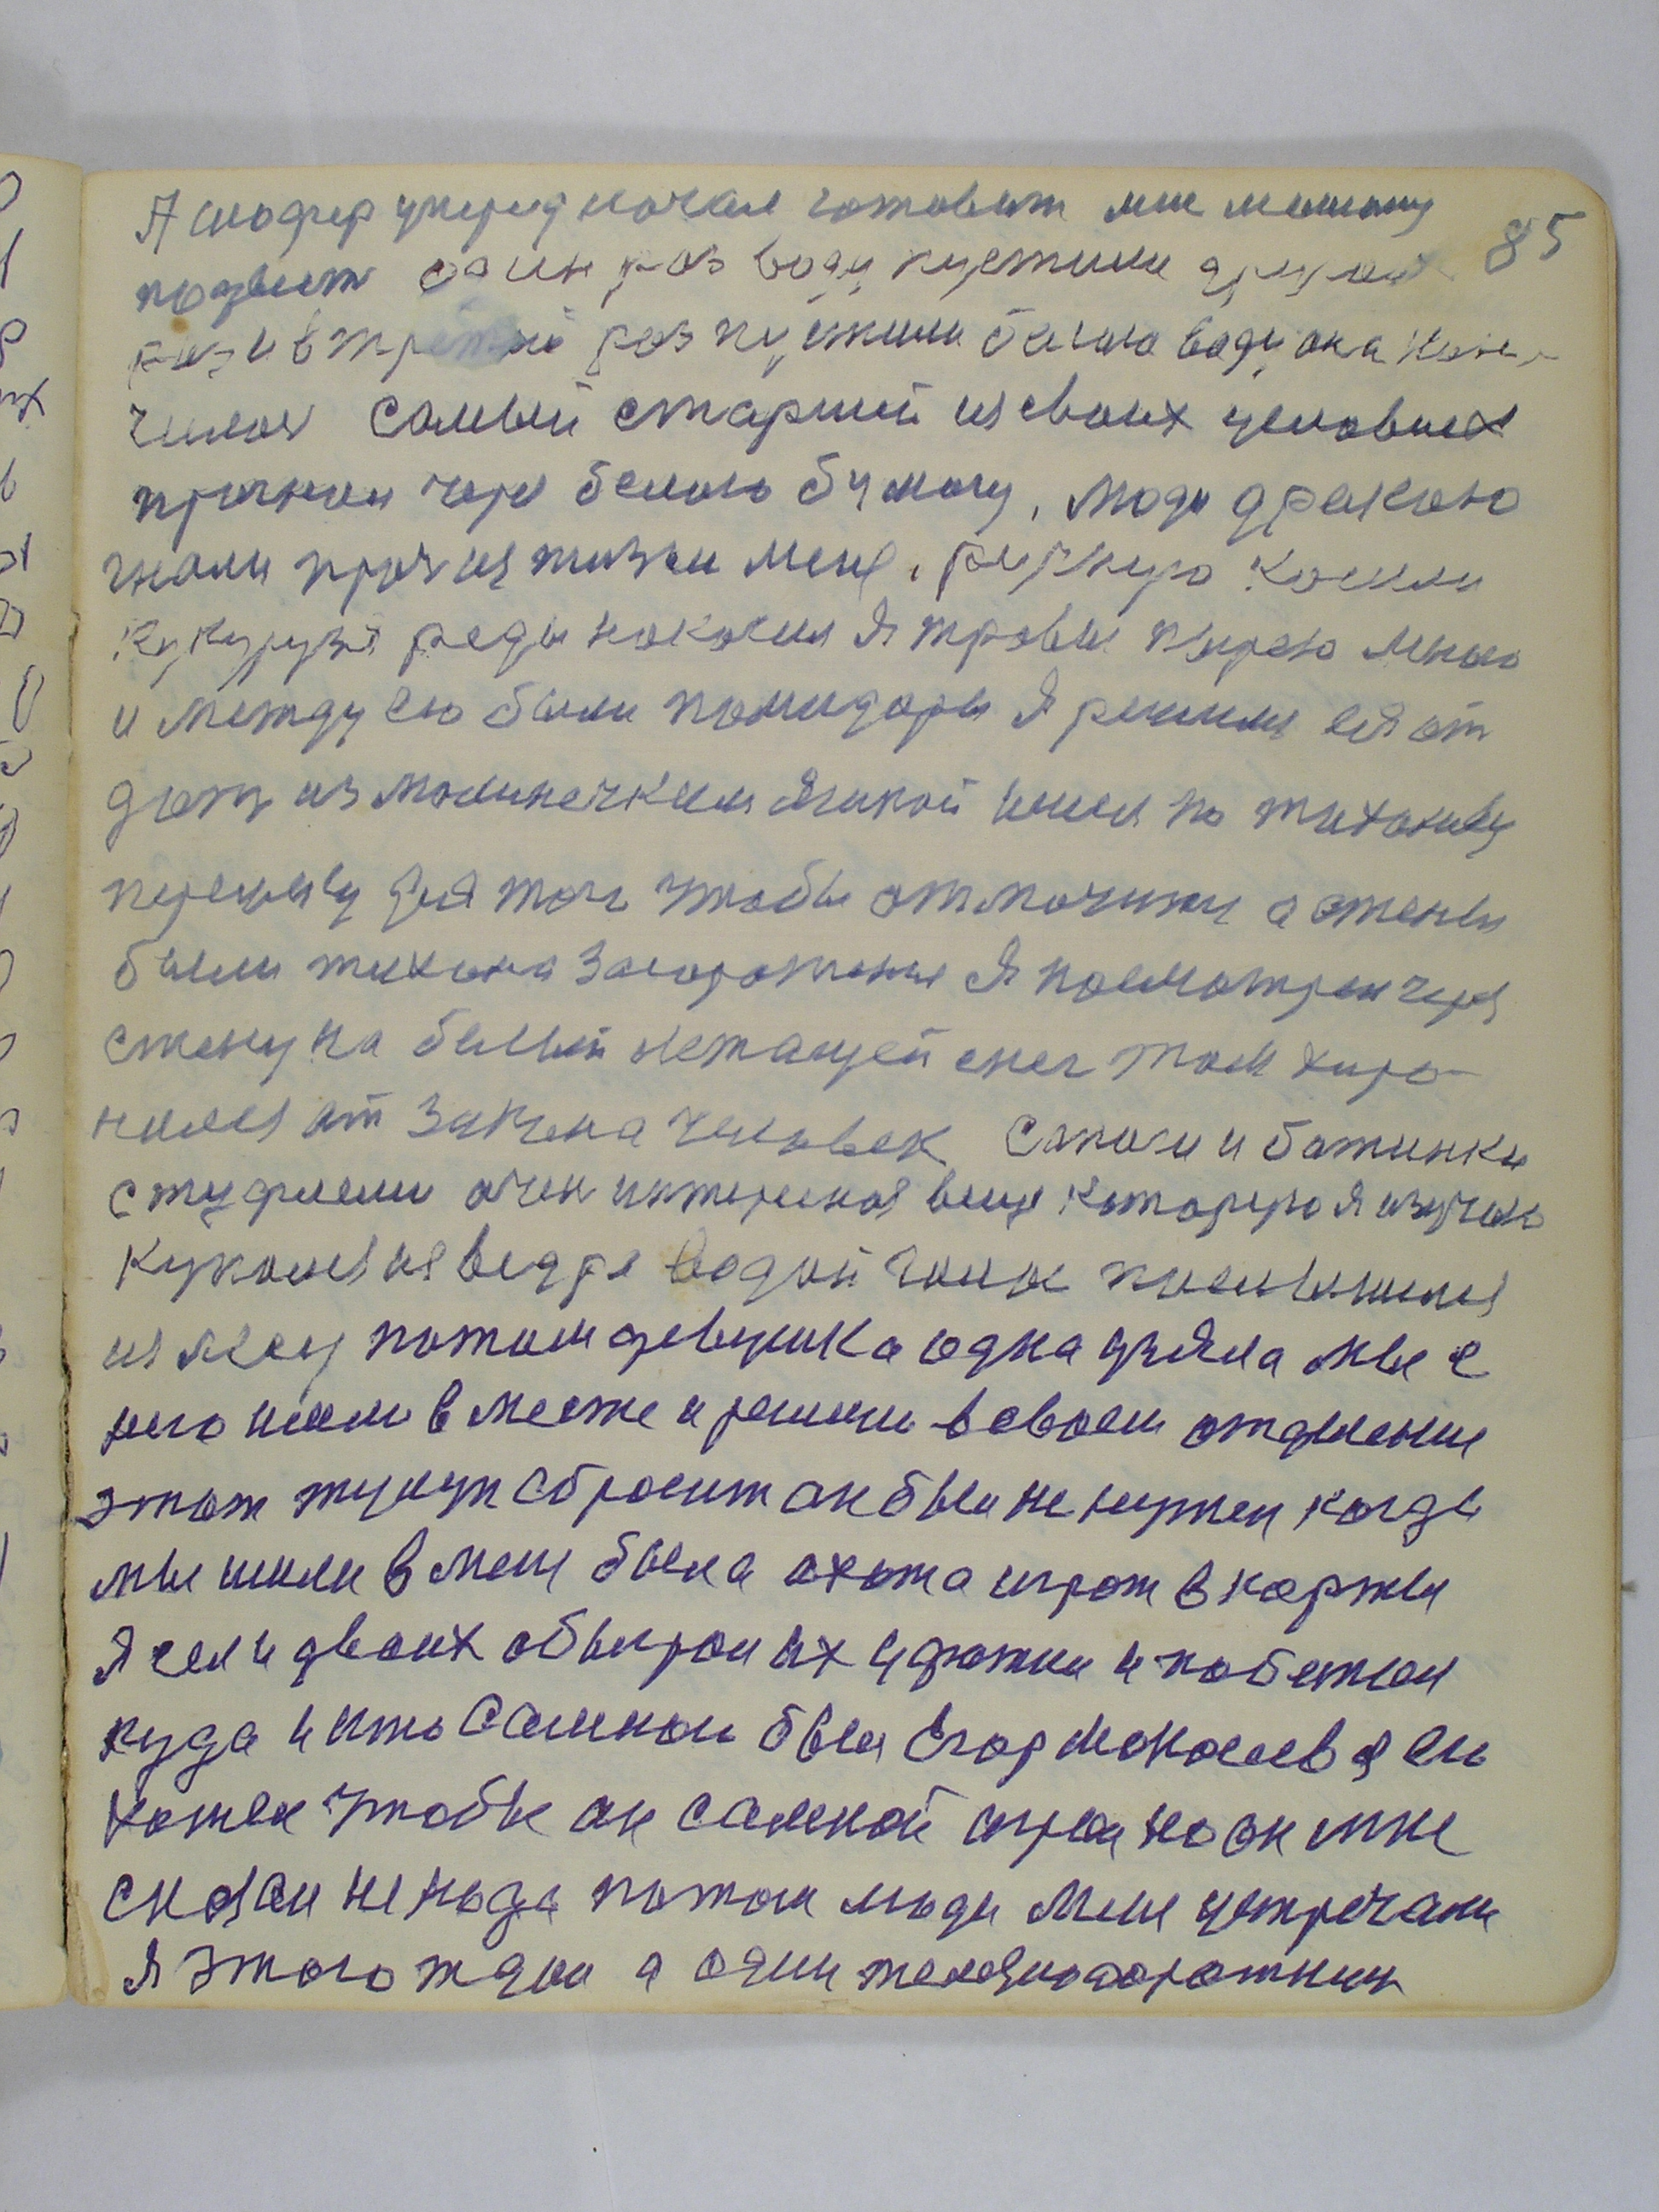 А шофер уперед начал готовит мне машину
85
подвест один раз воду пустили другой
раз и в третий раз пустили белаю воду она
самый старший из своих условиях
прогнал через белаю бумагу, люди дракою
гнали проч из жизни мене,
Кукурузы реды накосил я травы пырею много
и между ею были помидоры я решил ея от
дат из молинечким шел по тиханову
переулку для того чтобы отпочину а стены
были тихона загорожены я посмотрел через
стену на белый лежащей снег там хиро
нился от закона человек сапоги и ботинки
с туфлеми очен интересная вещ которую я изучаю
Купался из ведра водой
из лесу потом девушка одна узяла мы с
него шли в месте и решили в своем отделение
этот тулуп сбросит он был не нужен когда
мы шли в мене была охота играт в карты
я сел и двоих обыграл их удрожки и побежал
куда и што самною был Егор Монасев я ем
хотел чтобы он самной играл но он мне
сказал не нада потом люди мене устречали
я этого ждал а один железнодорожник